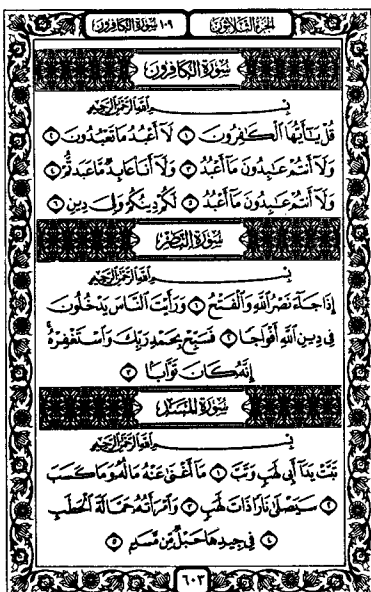 الجزء الثلاثون
١٠٩ سورة الكافرون
سورة الكافرون
بسم الله الرحمن الرحيم
قُلْ يَٰٓأَيُّهَا ٱلْكَٰفِرُونَ ١ لَآ أَعْبُدُ مَا تَعْبُدُونَ ٢
وَلَآ أَنتُمْ عَٰبِدُونَ مَآ أَعْبُدُ ٣ وَلَآ أَنَا۠ عَابِدٌ مَّا عَبَدتُّمْ ٤
وَلَآ أَنتُمْ عَٰبِدُونَ مَآ أَعْبُدُ ٥ لَكُمْ دِينُكُمْ وَلِىَ دِينِ ٦
سورة النصر
بسم الله الرحمن الرحيم
إِذَا جَآءَ نَصْرُ ٱللَّهِ وَٱلْفَتْحُ ١ وَرَأَيْتَ ٱلنَّاسَ يَدْخُلُونَ
فِى دِينِ ٱللَّهِ أَفْوَاجًا ٢ فَسَبِّحْ بِحَمْدِ رَبِّكَ وَٱسْتَغْفِرْهُ ۚ
إِنَّهُۥ كَانَ تَوَّابًۢا ٣
سورة المسد
بسم الله الرحمن الرحيم
تَبَّتْ يَدَآ أَبِى لَهَبٍ وَتَبَّ ١ مَآ أَغْنَىٰ عَنْهُ مَالُهُۥ وَمَا كَسَبَ
٢ سَيَصْلَىٰ نَارًا ذَاتَ لَهَبٍ ٣ وَٱمْرَأَتُهُۥ حَمَّالَةَ ٱلْحَطَبِ
٤ فِى جِيدِهَا حَبْلٌ مِّن مَّسَدٍۭ ٥
٦٠٣